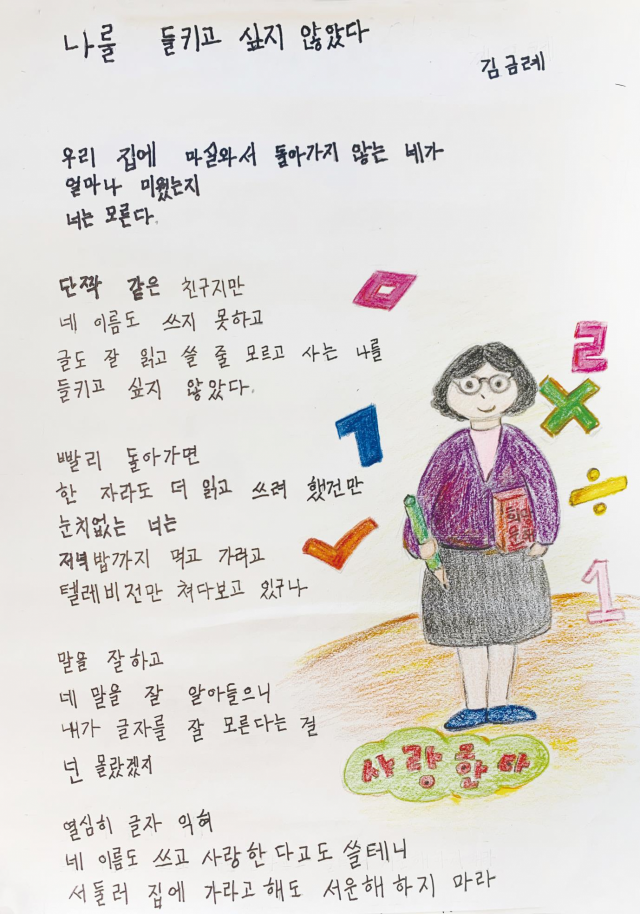 나를 들키고 싶지 않았다
김금례
우리 집에 마실와서 돌아가지 않는 네가
얼마나 미웠는지
너는 모른다.
단짝 같은 친구지만
네 이름도 쓰지 못하고
글도 잘 읽고 쓸 줄 모르고 사는 나를
들키고 싶지 않았다.
빨리 돌아가면
한 자라도 더 읽고 쓰려 했건만
눈치없는 너는
저녁밥까지 먹고 가려고
텔레비전만 쳐다보고 있구나
말을 잘하고
네 말을 잘 알아들으니
내가 글자를 잘 모른다는 걸
넌 몰랐겠지
열심히 글자 익혀
네 이름도 쓰고 사랑한다고도 쓸테니
서둘러 집에 가라고해도 서운해하지 마라
ㅁ
2
×
1
÷
희망
문해
1
사랑한다